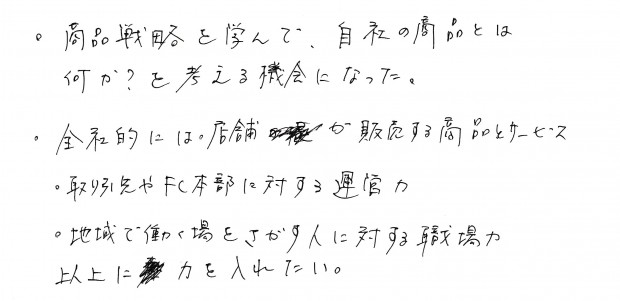 。商品戦略を学んで、自社の商品とは
何か?を考える機会になった。
。全社的には。店舗 が販売する商品とサービス
。取り引先やFC本部に対する運営力
。地域で働く場をさがす人に対する職場力
以上に 力を入れたい。